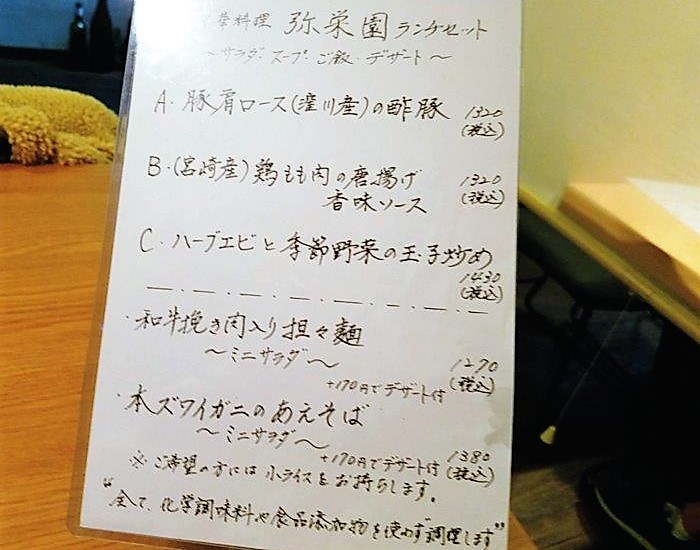 華料理 弥栄園 ランチセット
〜サラダ・スープ・ご飯・デザート〜
A・豚肩ロース(滝川産)の酢豚 1320
(税込)
B・(宮崎産)鶏もも肉の唐揚げ 1320
香味ソース (税込)
C・ハーブエビと季節野菜の玉子炒め
1430
(税込)
・和牛挽き肉入り担々麺
〜ミニサラダ〜 1270
+170円でデザート付 (税込)
・本ズワイガニのあえそば
〜ミニサラダ〜 1380
+170円でデザート付 (税込)
※ご希望の方には小ライスをお持ちします。
"全て、化学調味料や食品添加物を使わず調理します"